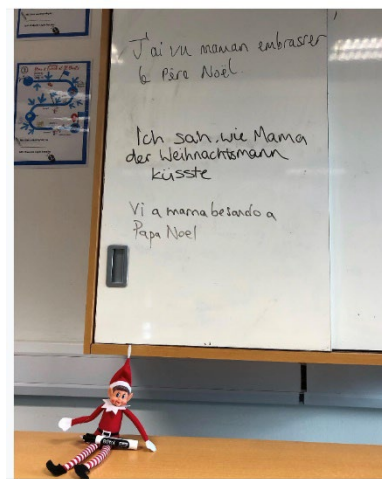 J'ai vu maman embrasser
le Père Noël
Ich sah, wie Mama
der Weihnachtsmann
küsste
Vi a mama besando a
Papa Noel